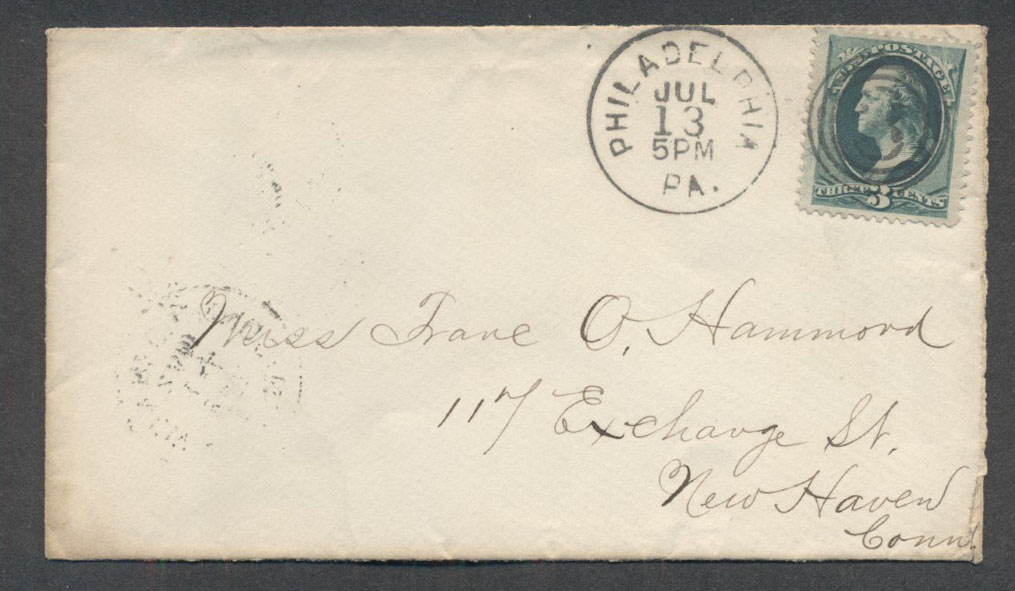 PHILADELPHIA
JUL
13
5PM
PA.
POSTAGE
THREE 3 CENTS
Miss Frank O. Hammond
117 Exchange St.
New Haven
Conn.